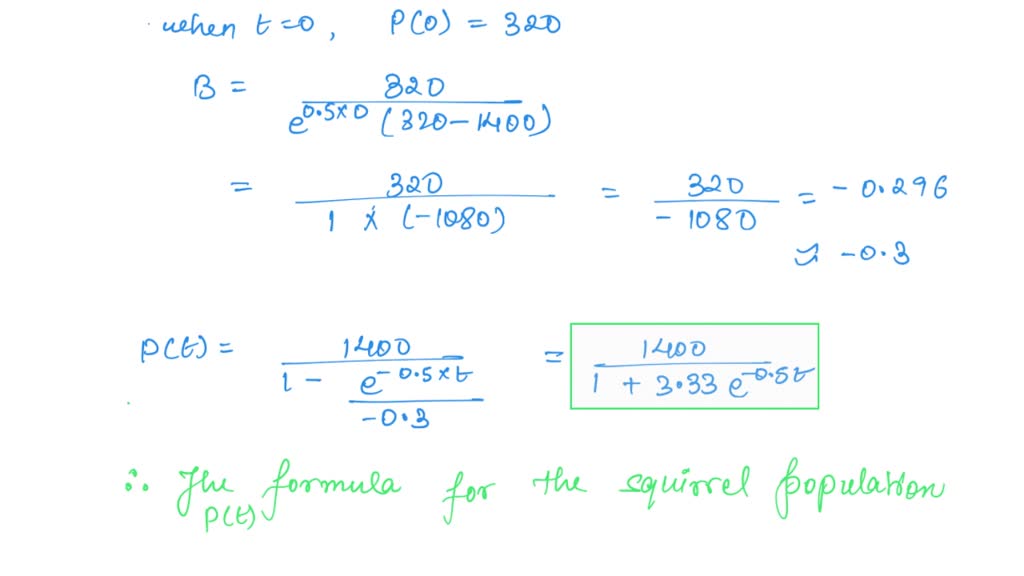 when t=0, P(0) = 320
B = 320 / e^0.5×0 (320-1400)
= 320 / 1 × (-1080) = 320 / -1080 = -0.296
≈ -0.3
P(t) = 1400 / 1 - e^-0.5×t / -0.3 = 1400 / 1 + 3.33 e^-0.5t
∴ The formula for the squirrel population
P(t)